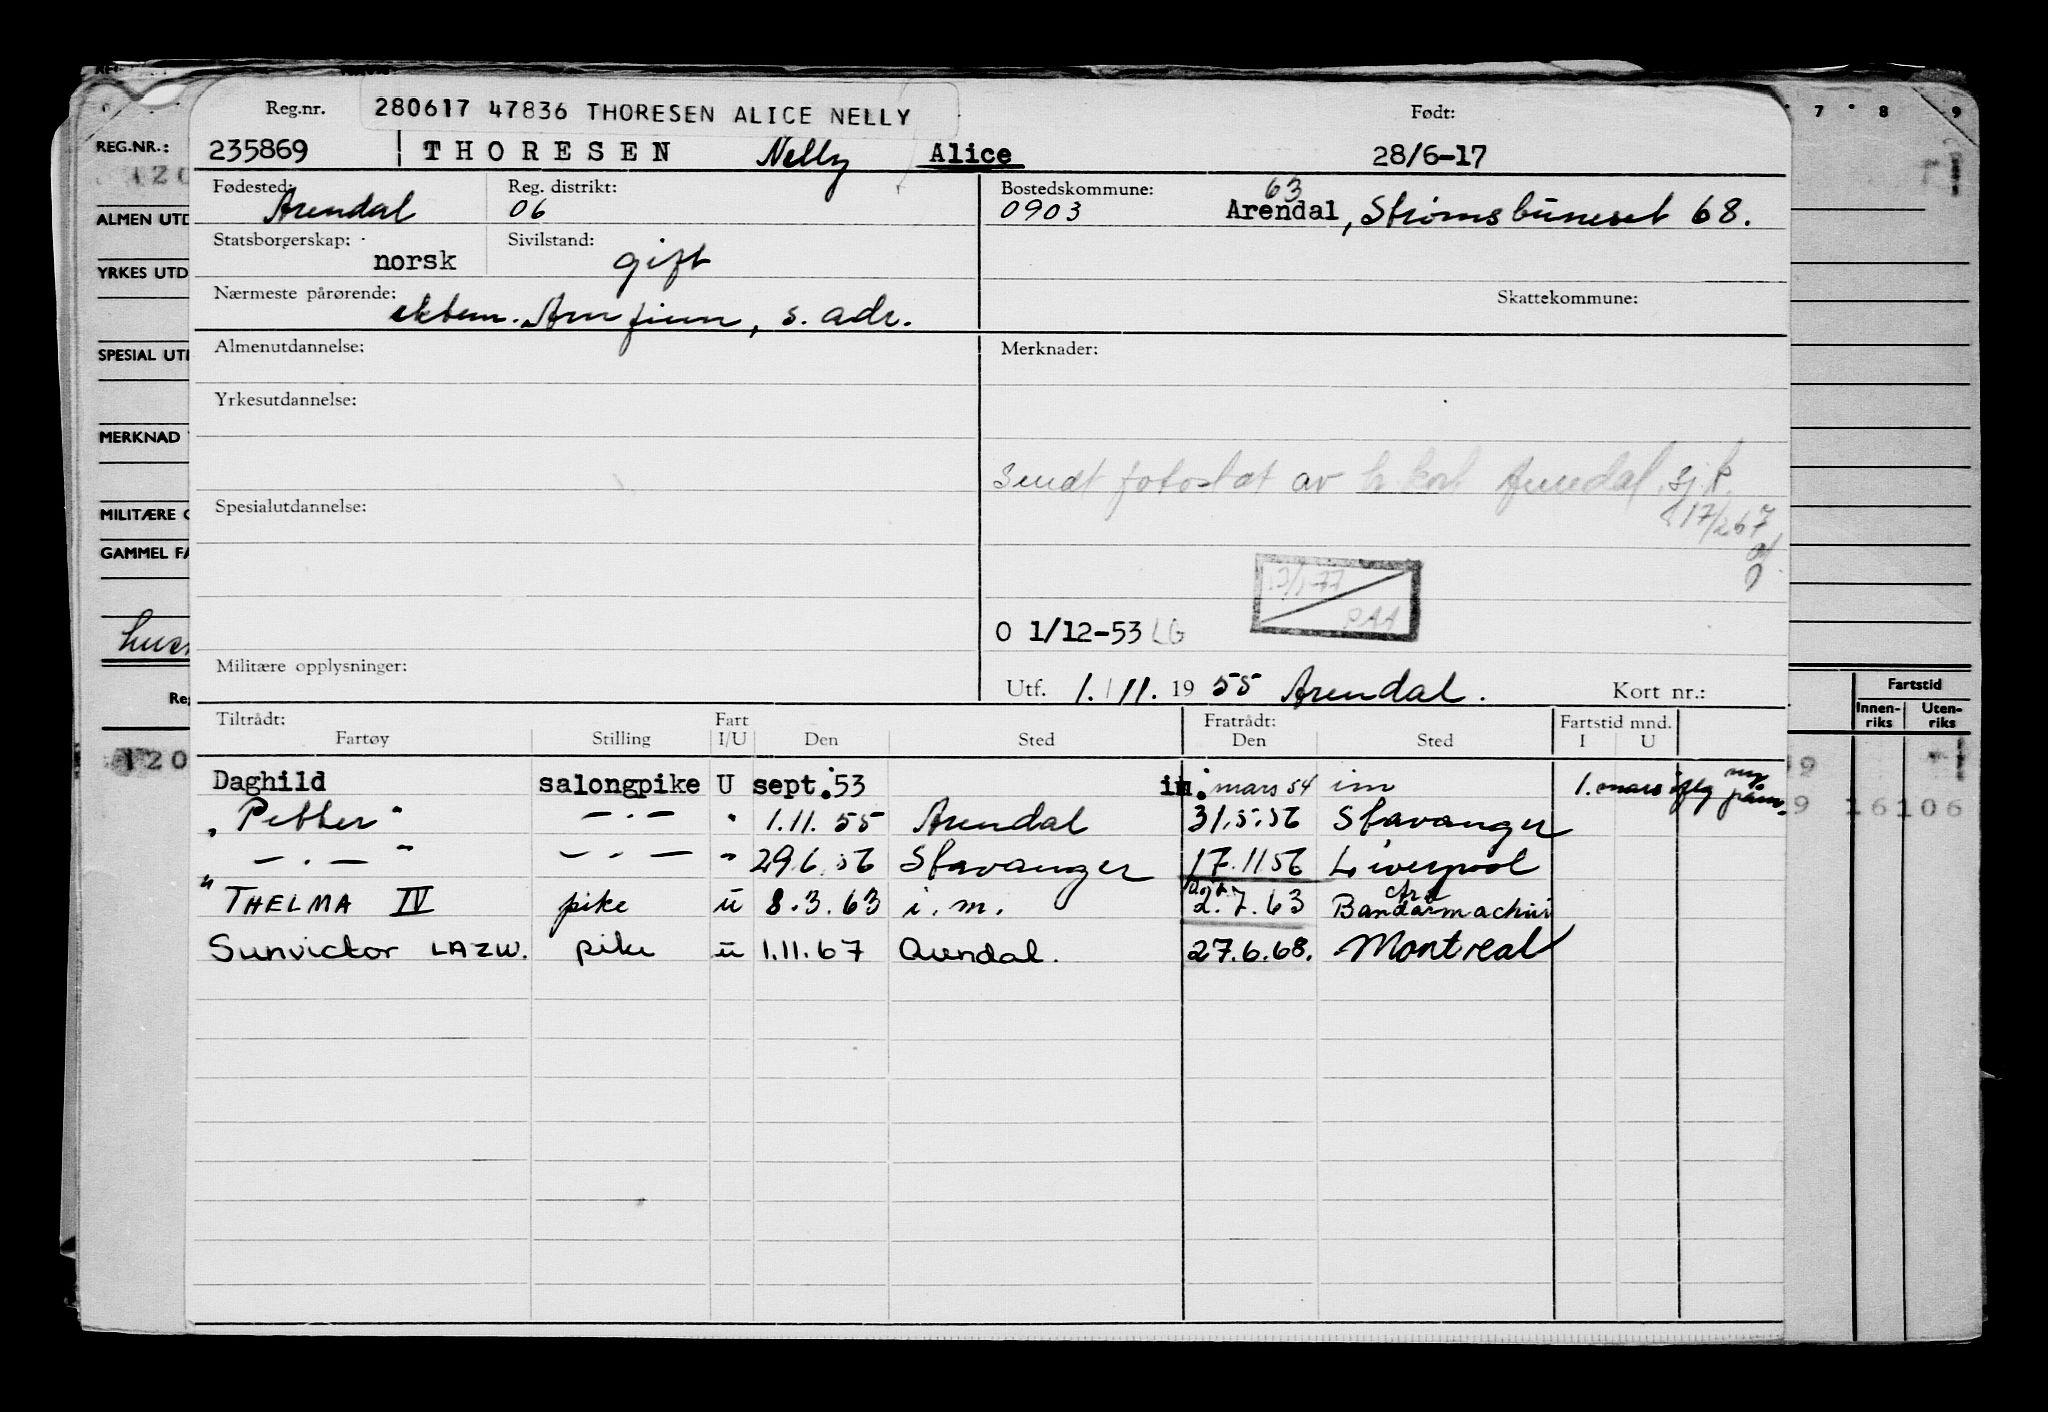 Reg.nr. 280617 47836 THORESEN ALICE NELLY Født:
235869 THORESEN Nelly Alice 28/6-17
Fødested: Arendal Reg. distrikt: 06 Bostedskommune: 0903 63 Arendal, Strømsbuneset 68.
Statsborgerskap: norsk Sivilstand: gift
Nærmeste pårørende: ektem. Arnfinn, s. adr. Skattekommune:
Almenutdannelse: Merknader:
Yrkesutdannelse:
Sendt fotostat av h.kort Arendal sj.k.
17/2 67
Spesialutdannelse:
RAA
O 1/12-53 LG
Militære opplysninger:
Utf. 1.11. 1955 Arendal. Kort nr.:
Tiltrådt: Fart Fratrådt: Fartstid mnd.
Fartøy Stilling I/U Den Sted Den Sted I U
Daghild salongpike U sept. 53 im. mars 54 im 1. mars iflg
"Petter" — . — " 1.11. 55 Arendal 31.5.56 Stavanger
" — . — " — . — " 29.6.56 Stavanger 17.11 56 Liverpool
" THELMA IV pike u 8.3.63 i.m. 2.7.63
Sunvictor LAZW. pike u 1.11.67 Arendal. 27.6.68. Montreal
REG.NR.:
120
ALMEN UTD
YRKES UTD
SPESIAL UTD
MERKNAD
MILITÆRE O
GAMMEL FA
Reg
120
7 8 9
Fartstid
Innen-riks Uten-riks
9
9 16106